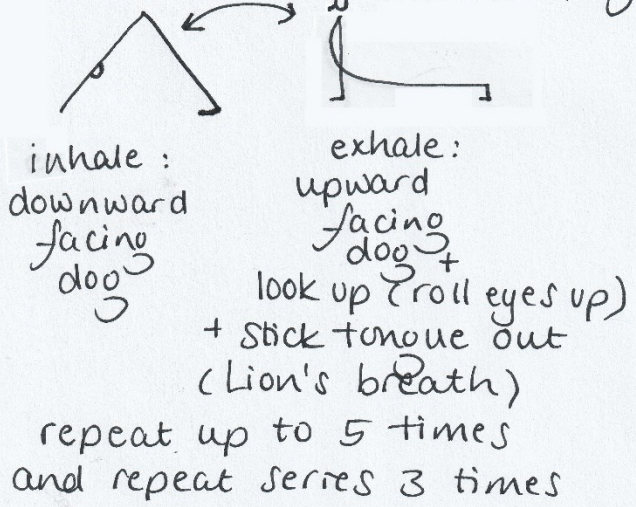 inhale :
downward
facing
dog
exhale:
upward
facing
dog +
look up (roll eyes up)
+ stick tongue out
(Lion's breath)
repeat up to 5 times
and repeat series 3 times